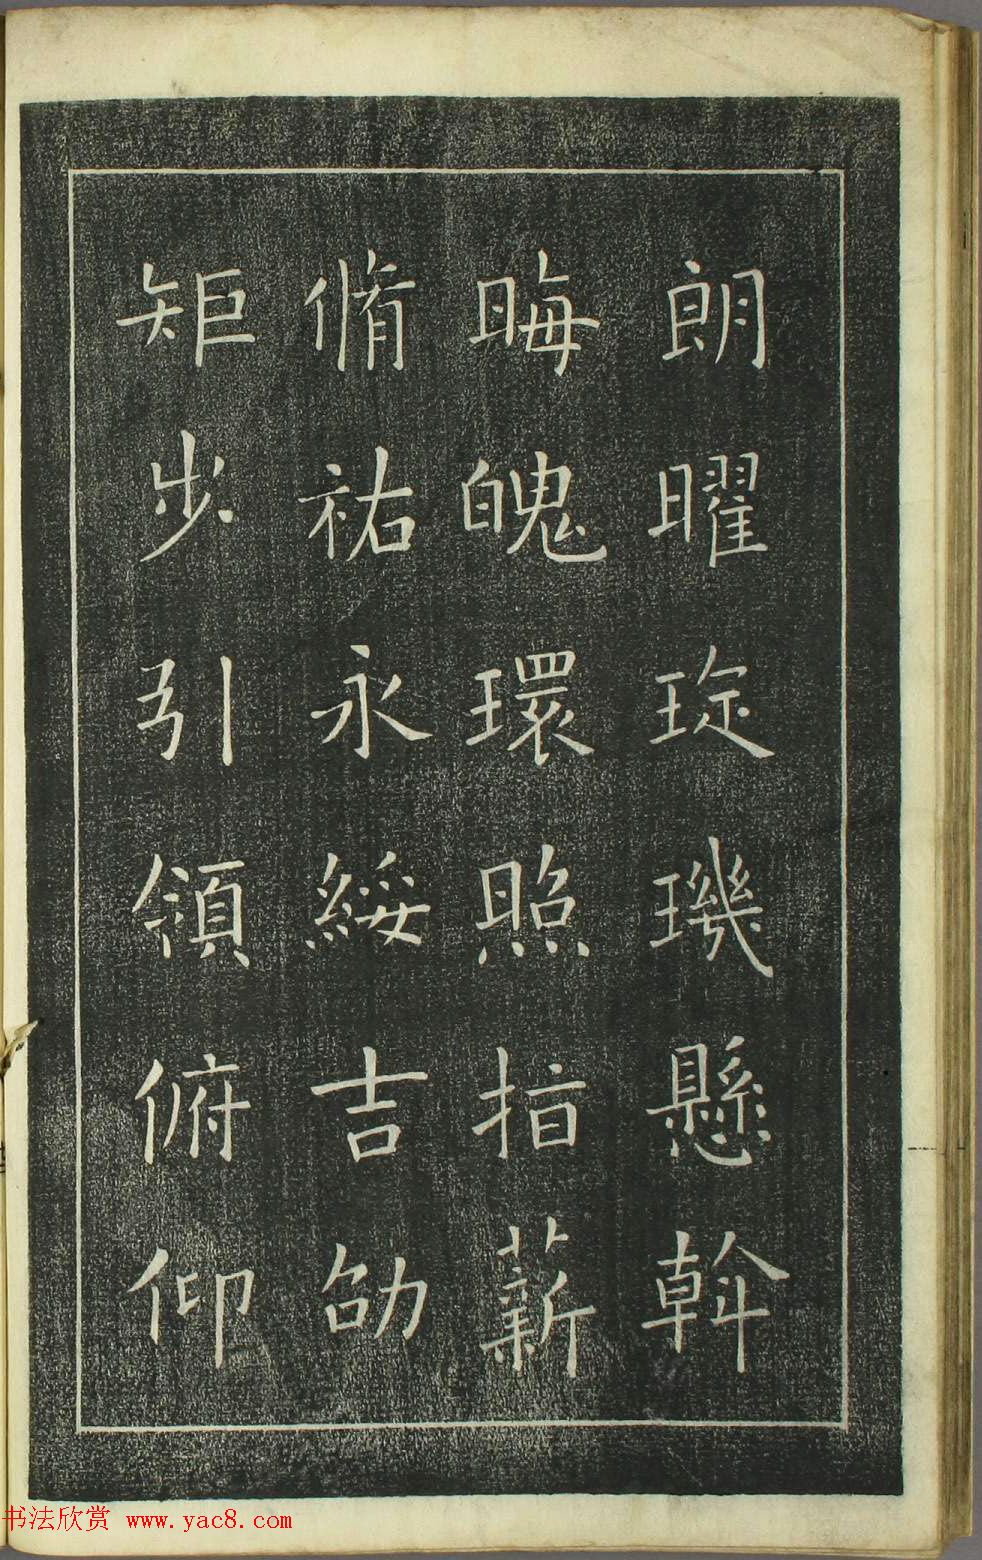 朗曜琁璣懸斡
晦魄環照指薪
脩祐永綏吉劭
矩步引領俯仰
书法欣赏 www.yac8.com